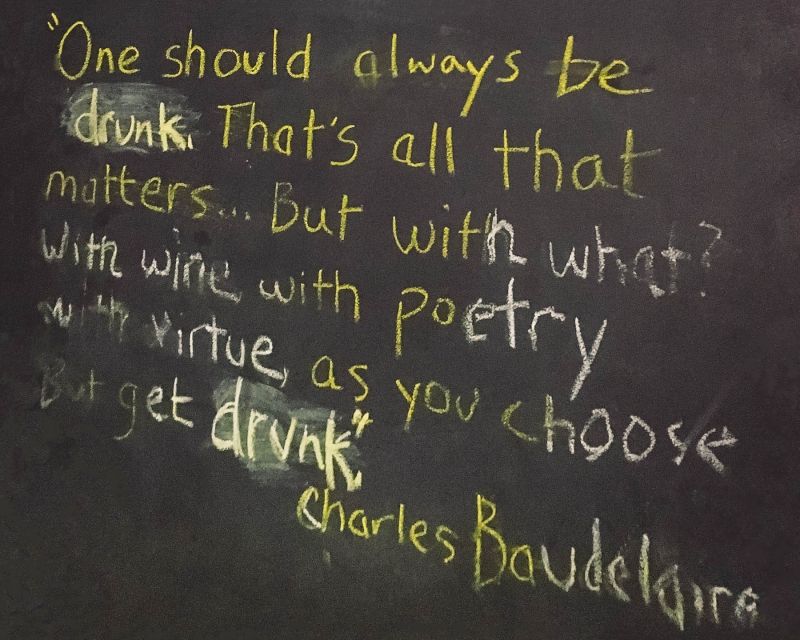 "One should always be
drunk. That's all that
matters... But with what?
With wine, with poetry
with virtue, as you choose
But get drunk."
Charles Baudelaire